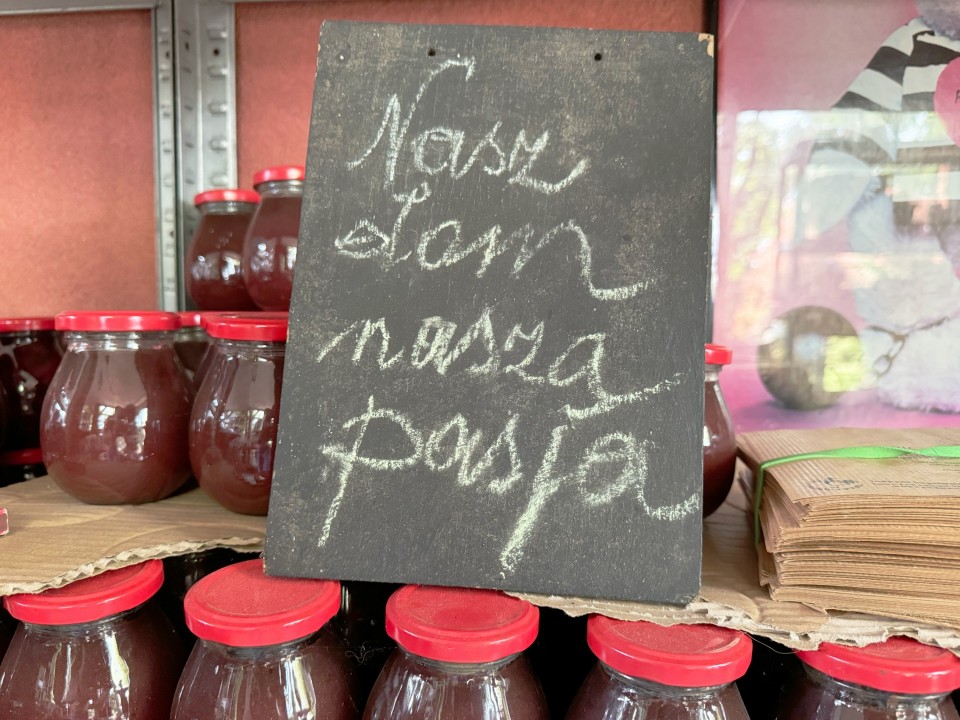 Nasz
dom
nasza
pasja